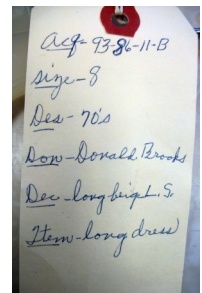 Acq- 93-86-11-B
Size-8
Des- 70's
Don-Donald Brooks
Dec-long beige L.S.
Item-long dress